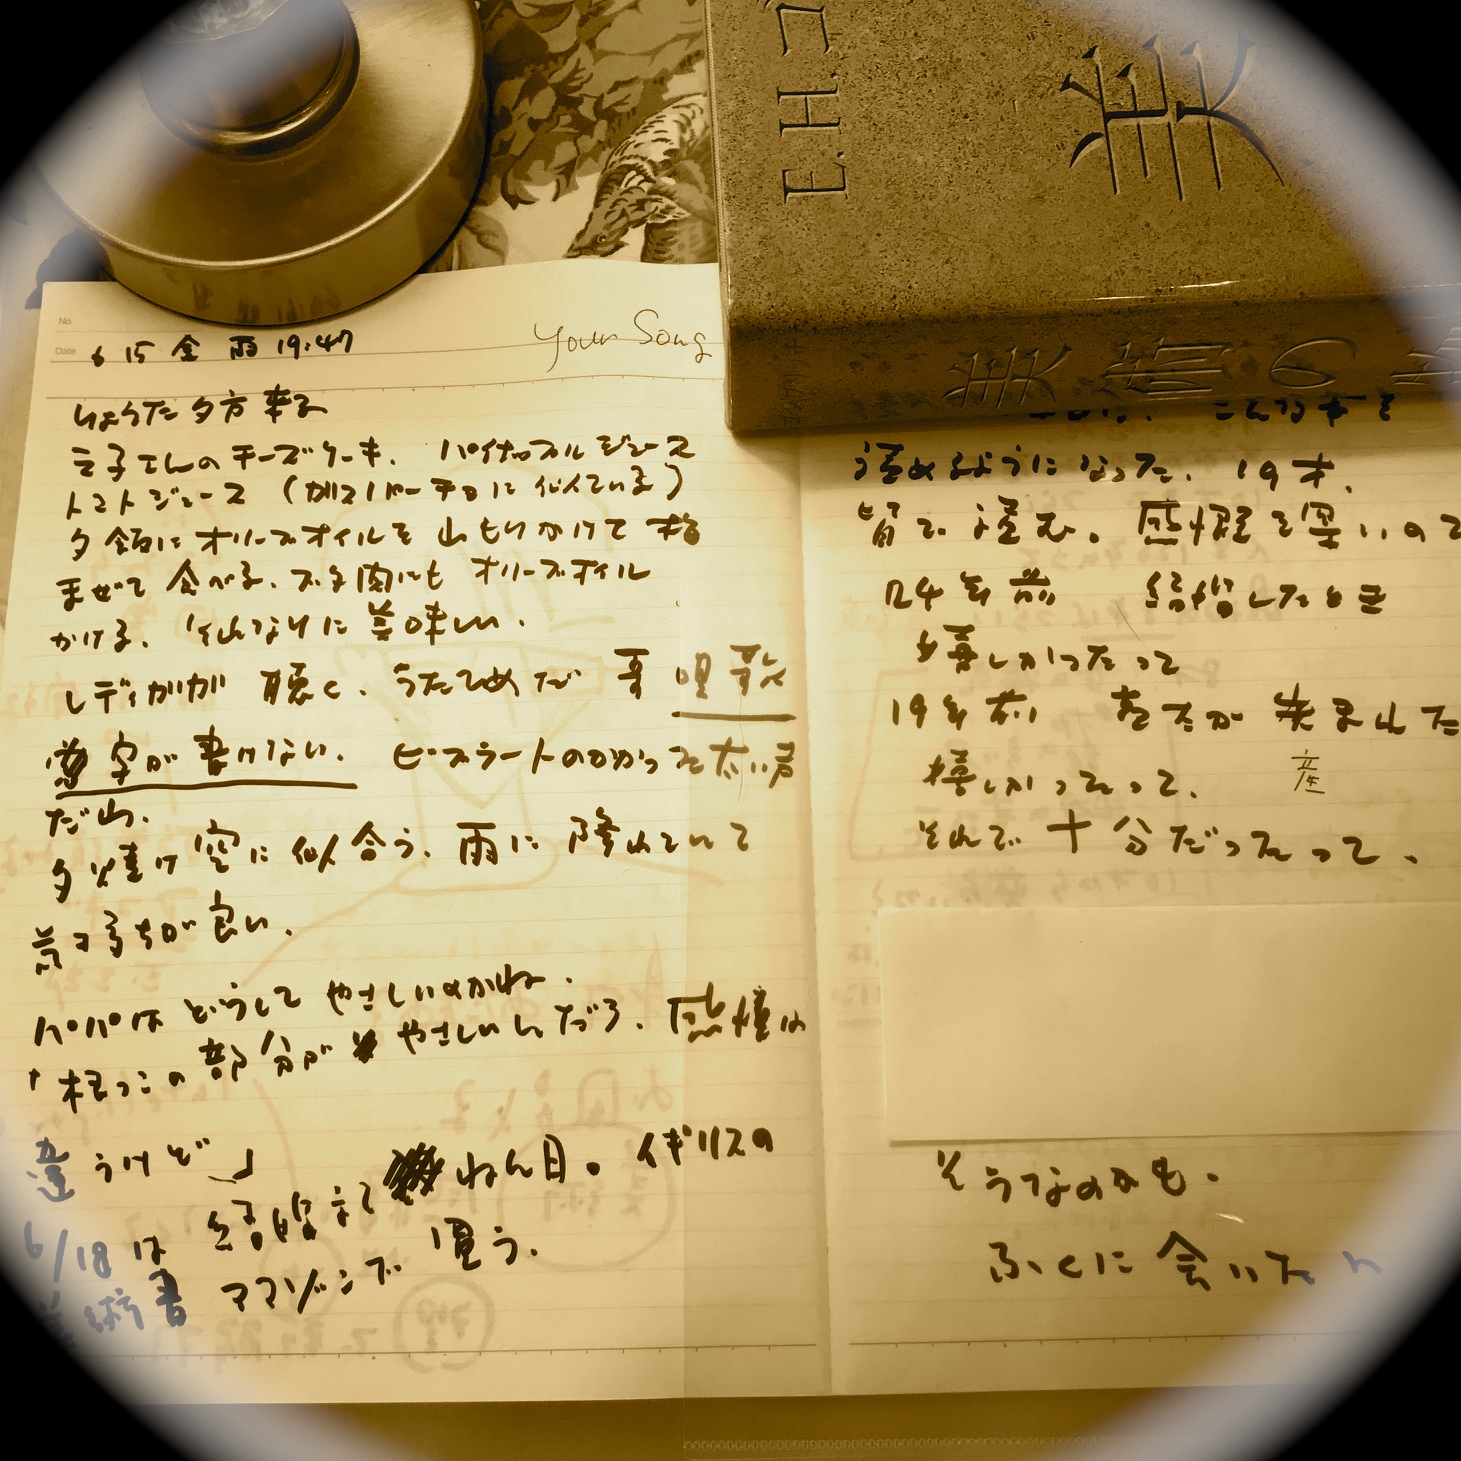 E.H.ゴ
美
美術の物
No.
Date 6 15 金 雨 19:47
Your Song
しょうた夕方来る
子さんのチーズケーキ、パイナップルジュース
トマトジュース（ガスパーチョに似ている）
夕飯にオリーブオイルを山もりかけて
まぜて食べる、ブタ肉にもオリーブオイル
かける、それなりに美味しい、
レディガガ 聴く、うたてめだ 哥 唄 歌
漢字が書けない、ビブラートのかかった太い声
だわ、
夕焼け空に似合う、雨に降れていて
気持ちが良い、
パパはどうしてやさしいのかね、
根っこの部分がやさしいんだろ、感情は
違うけど」
6/18は 結婚して ねん目。イギリスの
美術書 アマゾンで 買う、
こんな本を
読めるようになった、19才、
皆で読む。感想を聞いので
24年前 結婚したとき
嬉しかったって
19年前 が 失まれた
産
嬉しかったって、
それで十分だったって、
そうなのかも、
ふくに会いたい